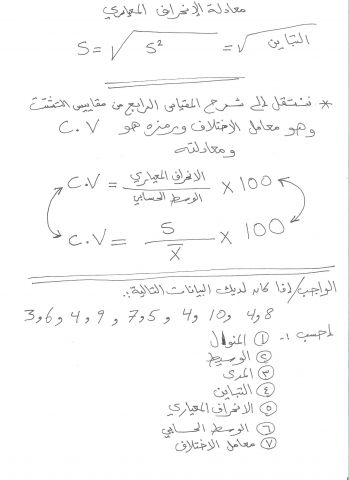 معادلة الانحراف المعياري
S = √S² = √التباين
* ننتقل إلى شرح المقياس الرابع من مقاييس التشتت
وهو معامل الاختلاف ورمزه هو C.V
ومعادلته
C.V = الانحراف المعياري / الوسط الحسابي × 100
C.V = S / x̄ × 100
الواجب / إذا كان لديك البيانات التالية:.
3,6, 4, 9, 7,5, 4, 10, 4,8
احسب :- ① المنوال
② الوسيط
③ المدى
④ التباين
⑤ الانحراف المعياري
⑥ الوسط الحسابي
⑦ معامل الاختلاف